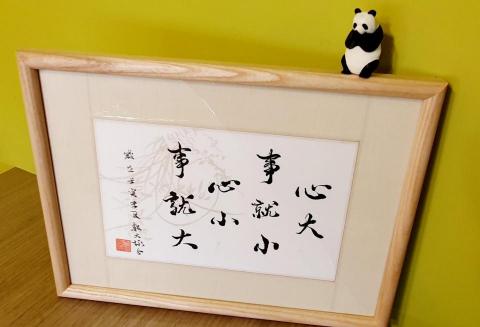 心大
事就小
心小
事就大